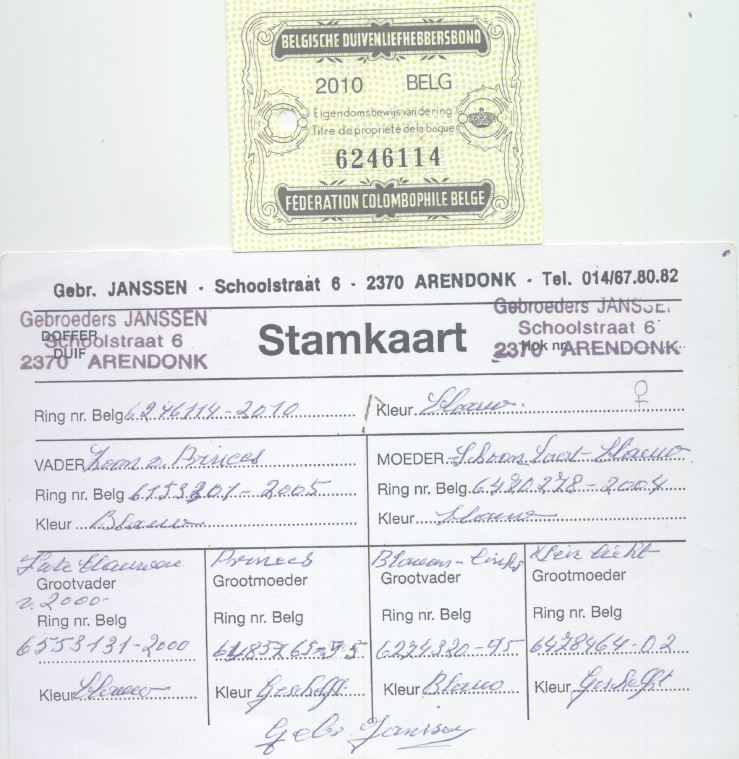 BELGISCHE DUIVENLIEFHEBBERSBOND
2010 BELG
Eigendomsbewijs van de ring
Titre de propriété de la bague
6246114
FÉDÉRATION COLOMBOPHILE BELGE
Gebr. JANSSEN - Schoolstraat 6 - 2370 ARENDONK - Tel. 014/67.80.82
Gebroeders JANSSEN
Schoolstraat 6
2370 ARENDONK
DOFFER
DUIF
Stamkaart
Gebroeders JANSSEN
Schoolstraat 6
2370 ARENDONK
Hok nr.
Ring nr. Belg 6246114-2010
Kleur Blauw ♀
VADER Zoon v. Princes
Ring nr. Belg 6153201-2005
Kleur Blauw
MOEDER Schoon Licht-Blauw
Ring nr. Belg 6420278-2004
Kleur Blauw
Late Blauwen
Grootvader
v. 2000
Ring nr. Belg
6553131-2000
Kleur Blauw
Princes
Grootmoeder
Ring nr. Belg
Kleur Geschelft
Blauwen-
Grootvader
Ring nr. Belg
6274320-95
Kleur Blauw
Klein Licht
Grootmoeder
Ring nr. Belg
6428464-02
Kleur Geschelft
Gebr Janssen